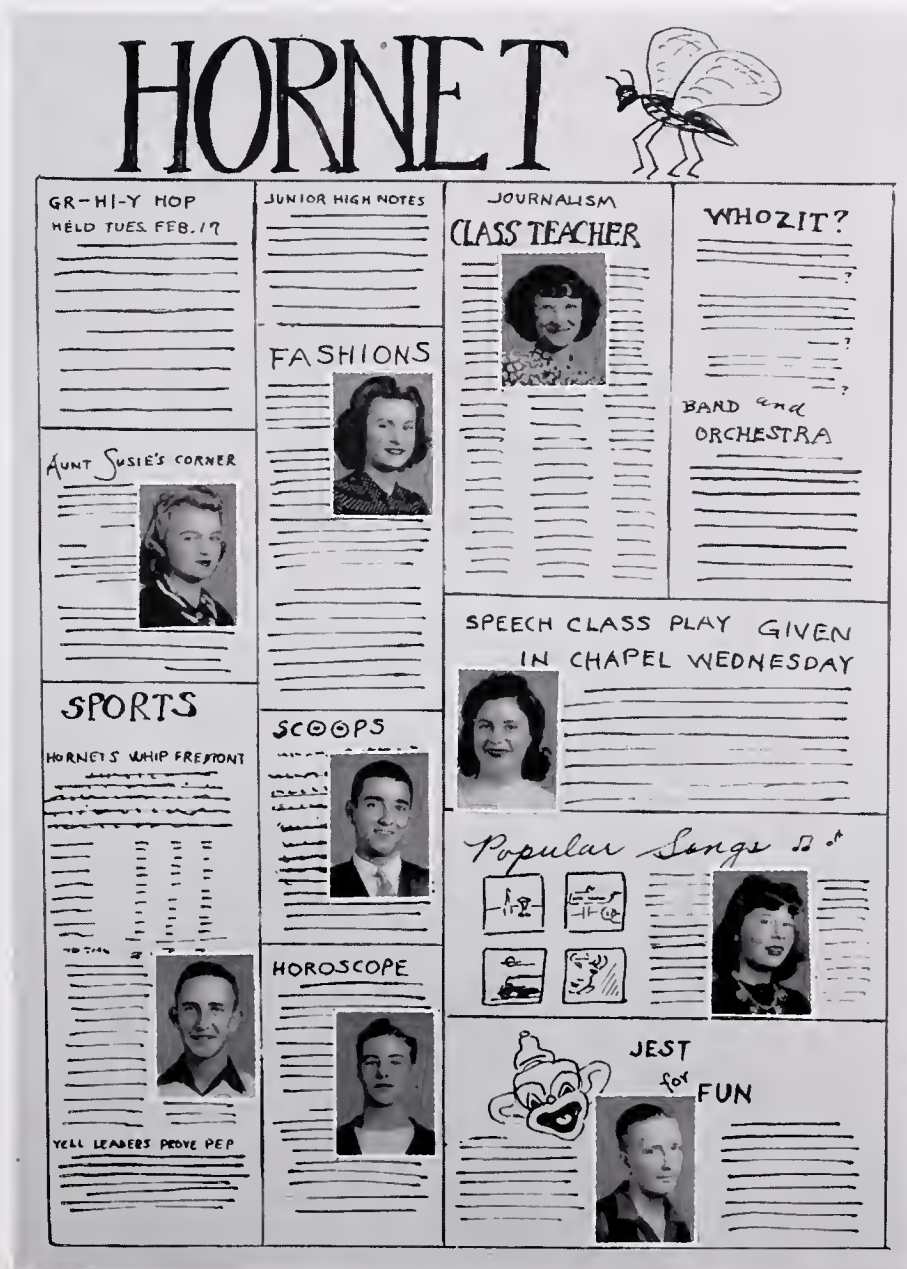 HORNET
GR-HI-Y HOP
HELD TUES. FEB. 17
AUNT SUSIE'S CORNER
SPORTS
HORNETS WHIP FREMONT
YELL LEADERS PROVE PEP
JUNIOR HIGH NOTES
FASHIONS
SCOOPS
HOROSCOPE
JOURNALISM
CLASS TEACHER
WHOZIT?
?
?
?
BAND and
ORCHESTRA
SPEECH CLASS PLAY GIVEN
IN CHAPEL WEDNESDAY
Popular Songs
JEST
for
FUN